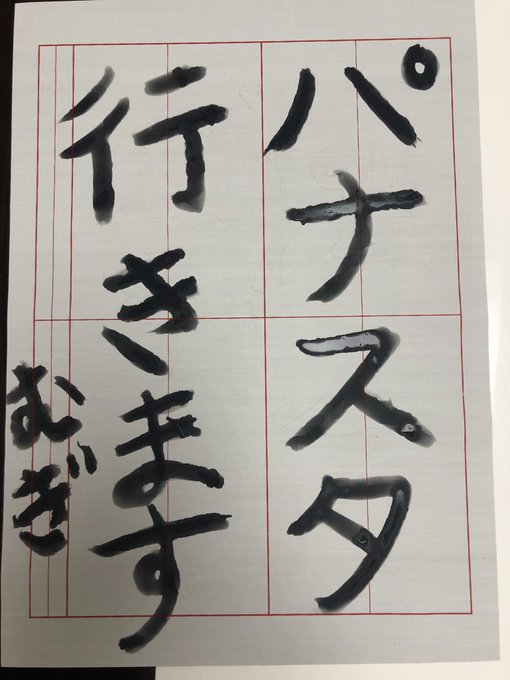 パナスタ
行きます
むぎ